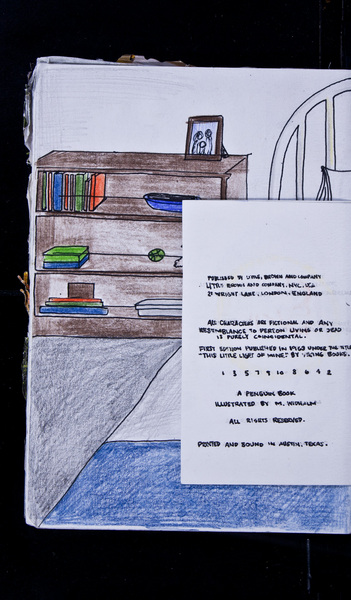 PUBLISHED BY LITTLE, BROWN AND COMPANY
LITTLE BROWN AND COMPANY, NYC, NY
27 WRIGHT LANE, LONDON, ENGLAND
ALL CHARACTERS ARE FICTIONAL AND ANY
RESEMBLANCE TO PERSON LIVING OR DEAD
IS PURELY COINCIDENTAL.
FIRST EDITION PUBLISHED IN 1963 UNDER THE TITLE
"THIS LITTLE LIGHT OF MINE" BY VIKING BOOKS.
1 3 5 7 9 10 8 6 4 2
A PENGUIN BOOK
ILLUSTRATED BY M. WIDHALM
ALL RIGHTS RESERVED.
PRINTED AND BOUND IN AUSTIN, TEXAS.